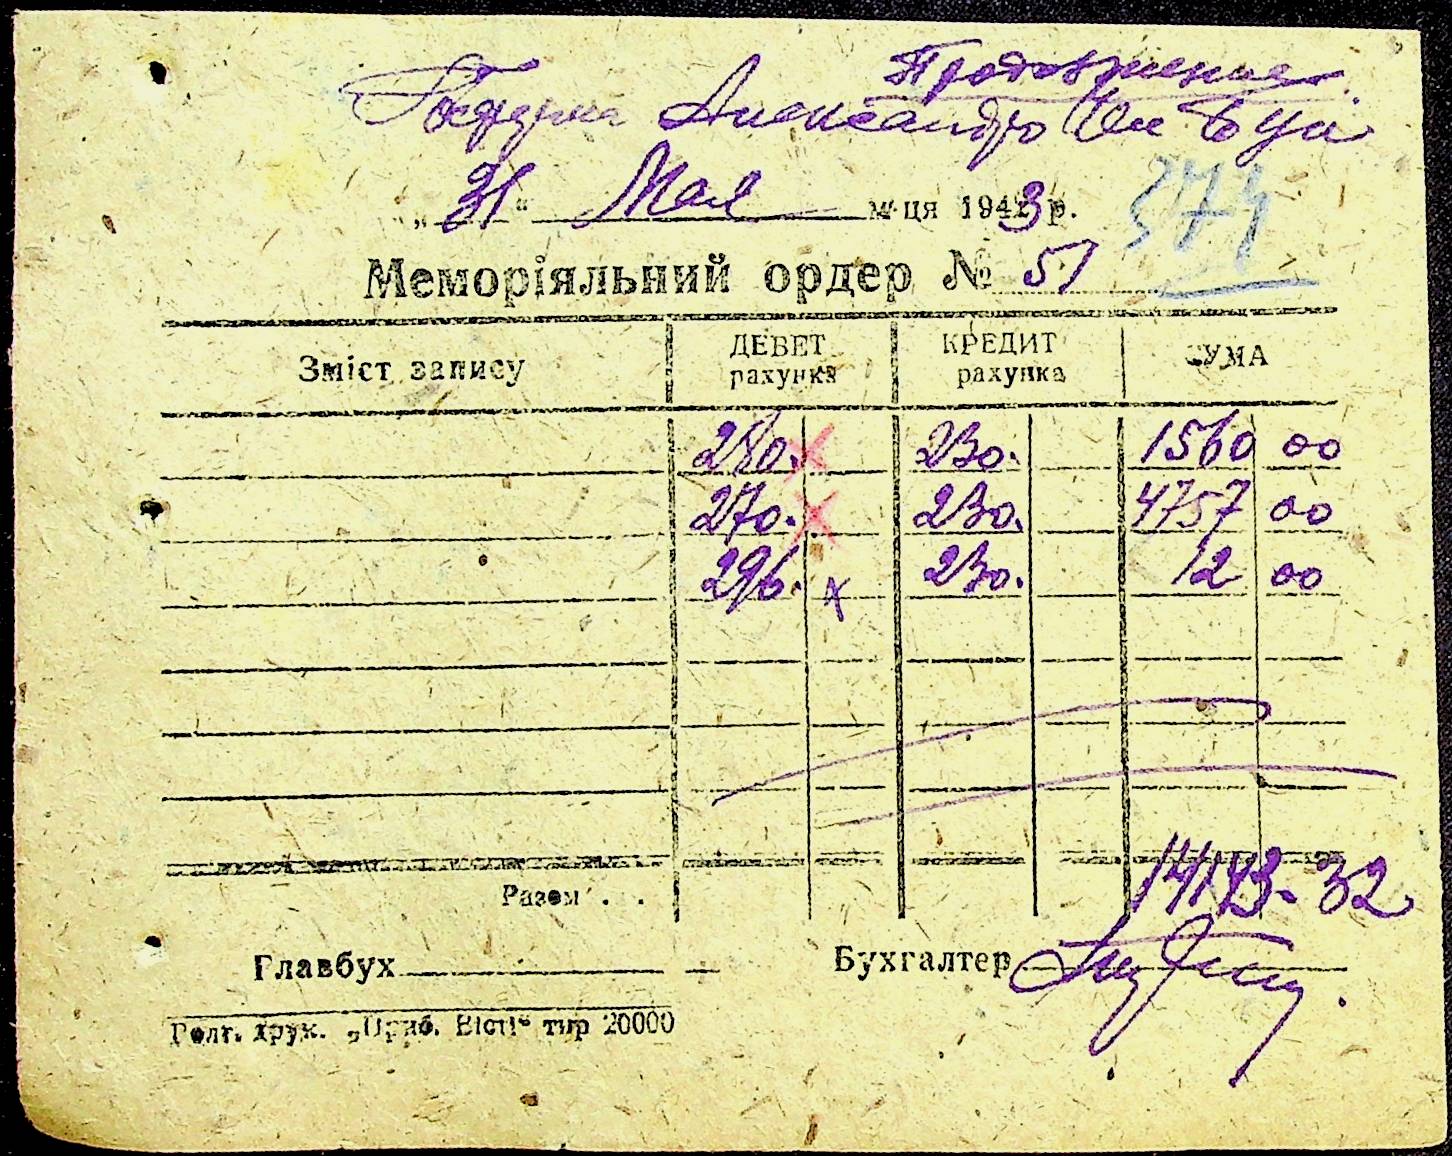 Продолжение
Госферма Александро
„31“ Мая м-ця 1943 р.
374
Меморіяльний ордер № 51
Зміст запису ДЕБЕТ рахунка КРЕДИТ рахунка СУМА
280. x 230. 1560 00
270. x 230. 4757 00
296. x 230. 12 00
Разом . . 14143-32
Главбух Бухгалтер
друк. „Приб. Вісті“ тир 20000